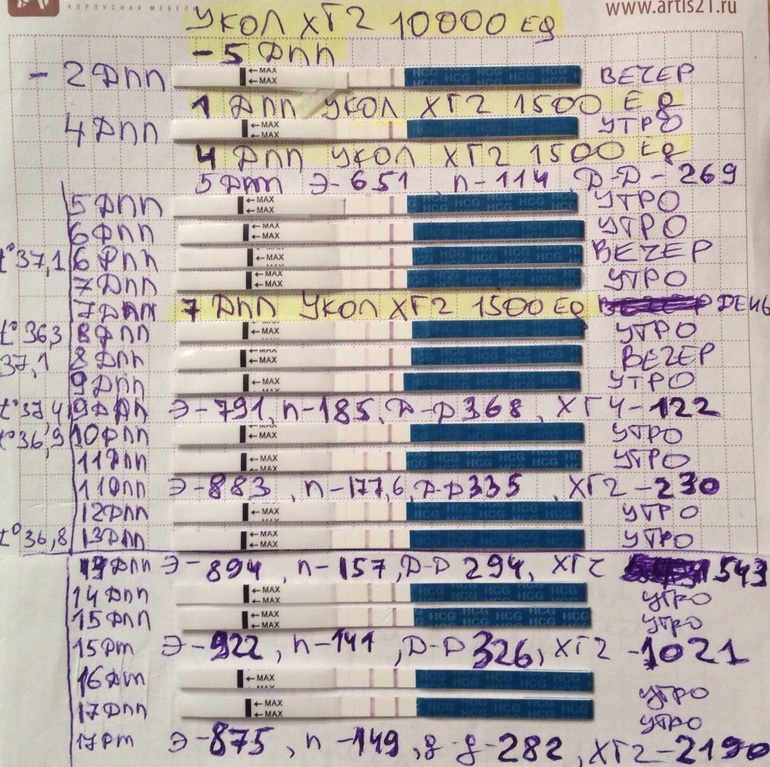 КОРПУСНАЯ МЕБЕЛЬ
www.artis21.ru
УКОЛ ХГ2 10000 ЕД
-5 ДПП
-2 ДПП ←MAX HCG HCG HCG HCG ВЕЧЕР
1 ДПП УКОЛ ХГ2 1500 ЕД
4 ДПП ←MAX УТРО
4 ДПП УКОЛ ХГ2 1500 ЕД
5 Дпт Э-651 П-114 Д-Д-269
5 ДПП ←MAX HCG HCG HCG УТРО
6 ДПП ←MAX УТРО
t° 37,1 6 ДПП ←MAX HCG HCG HCG HCG ВЕЧЕР
7 ДПП ←MAX УТРО
7 ДПП 7 ДПП УКОЛ ХГ2 1500 ЕД ДЕНЬ
t° 36,3 8 ДПП ←MAX УТРО
37,1 8 ДПП ←MAX HCG HCG HCG HCG ВЕЧЕР
9 ДПП ←MAX УТРО
t° 37,4 9 ДПП Э-791, П-185, Д-Д 368, ХГЧ-122
t° 36,9 10 ДПП ←MAX УТРО
11 ДПП ←MAX HCG HCG HCG HCG УТРО
11 ДПП Э-883, П-177,6, Д-Д 335, ХГ2-230
12 ДПП ←MAX УТРО
t° 36,8 13 ДПП ←MAX УТРО
ДПП Э-894, П-157, Д-Д 294, ХГ2 543
14 ДПП ←MAX УТРО
15 ДПП ←MAX УТРО
15 Дпт Э-922, П-141, Д-Д 326, ХГ2-1021
16 Дпт ←MAX УТРО
17 ДПП ←MAX УТРО
17 Дпт Э-875, П-149, д-д-282, ХГ2-2190